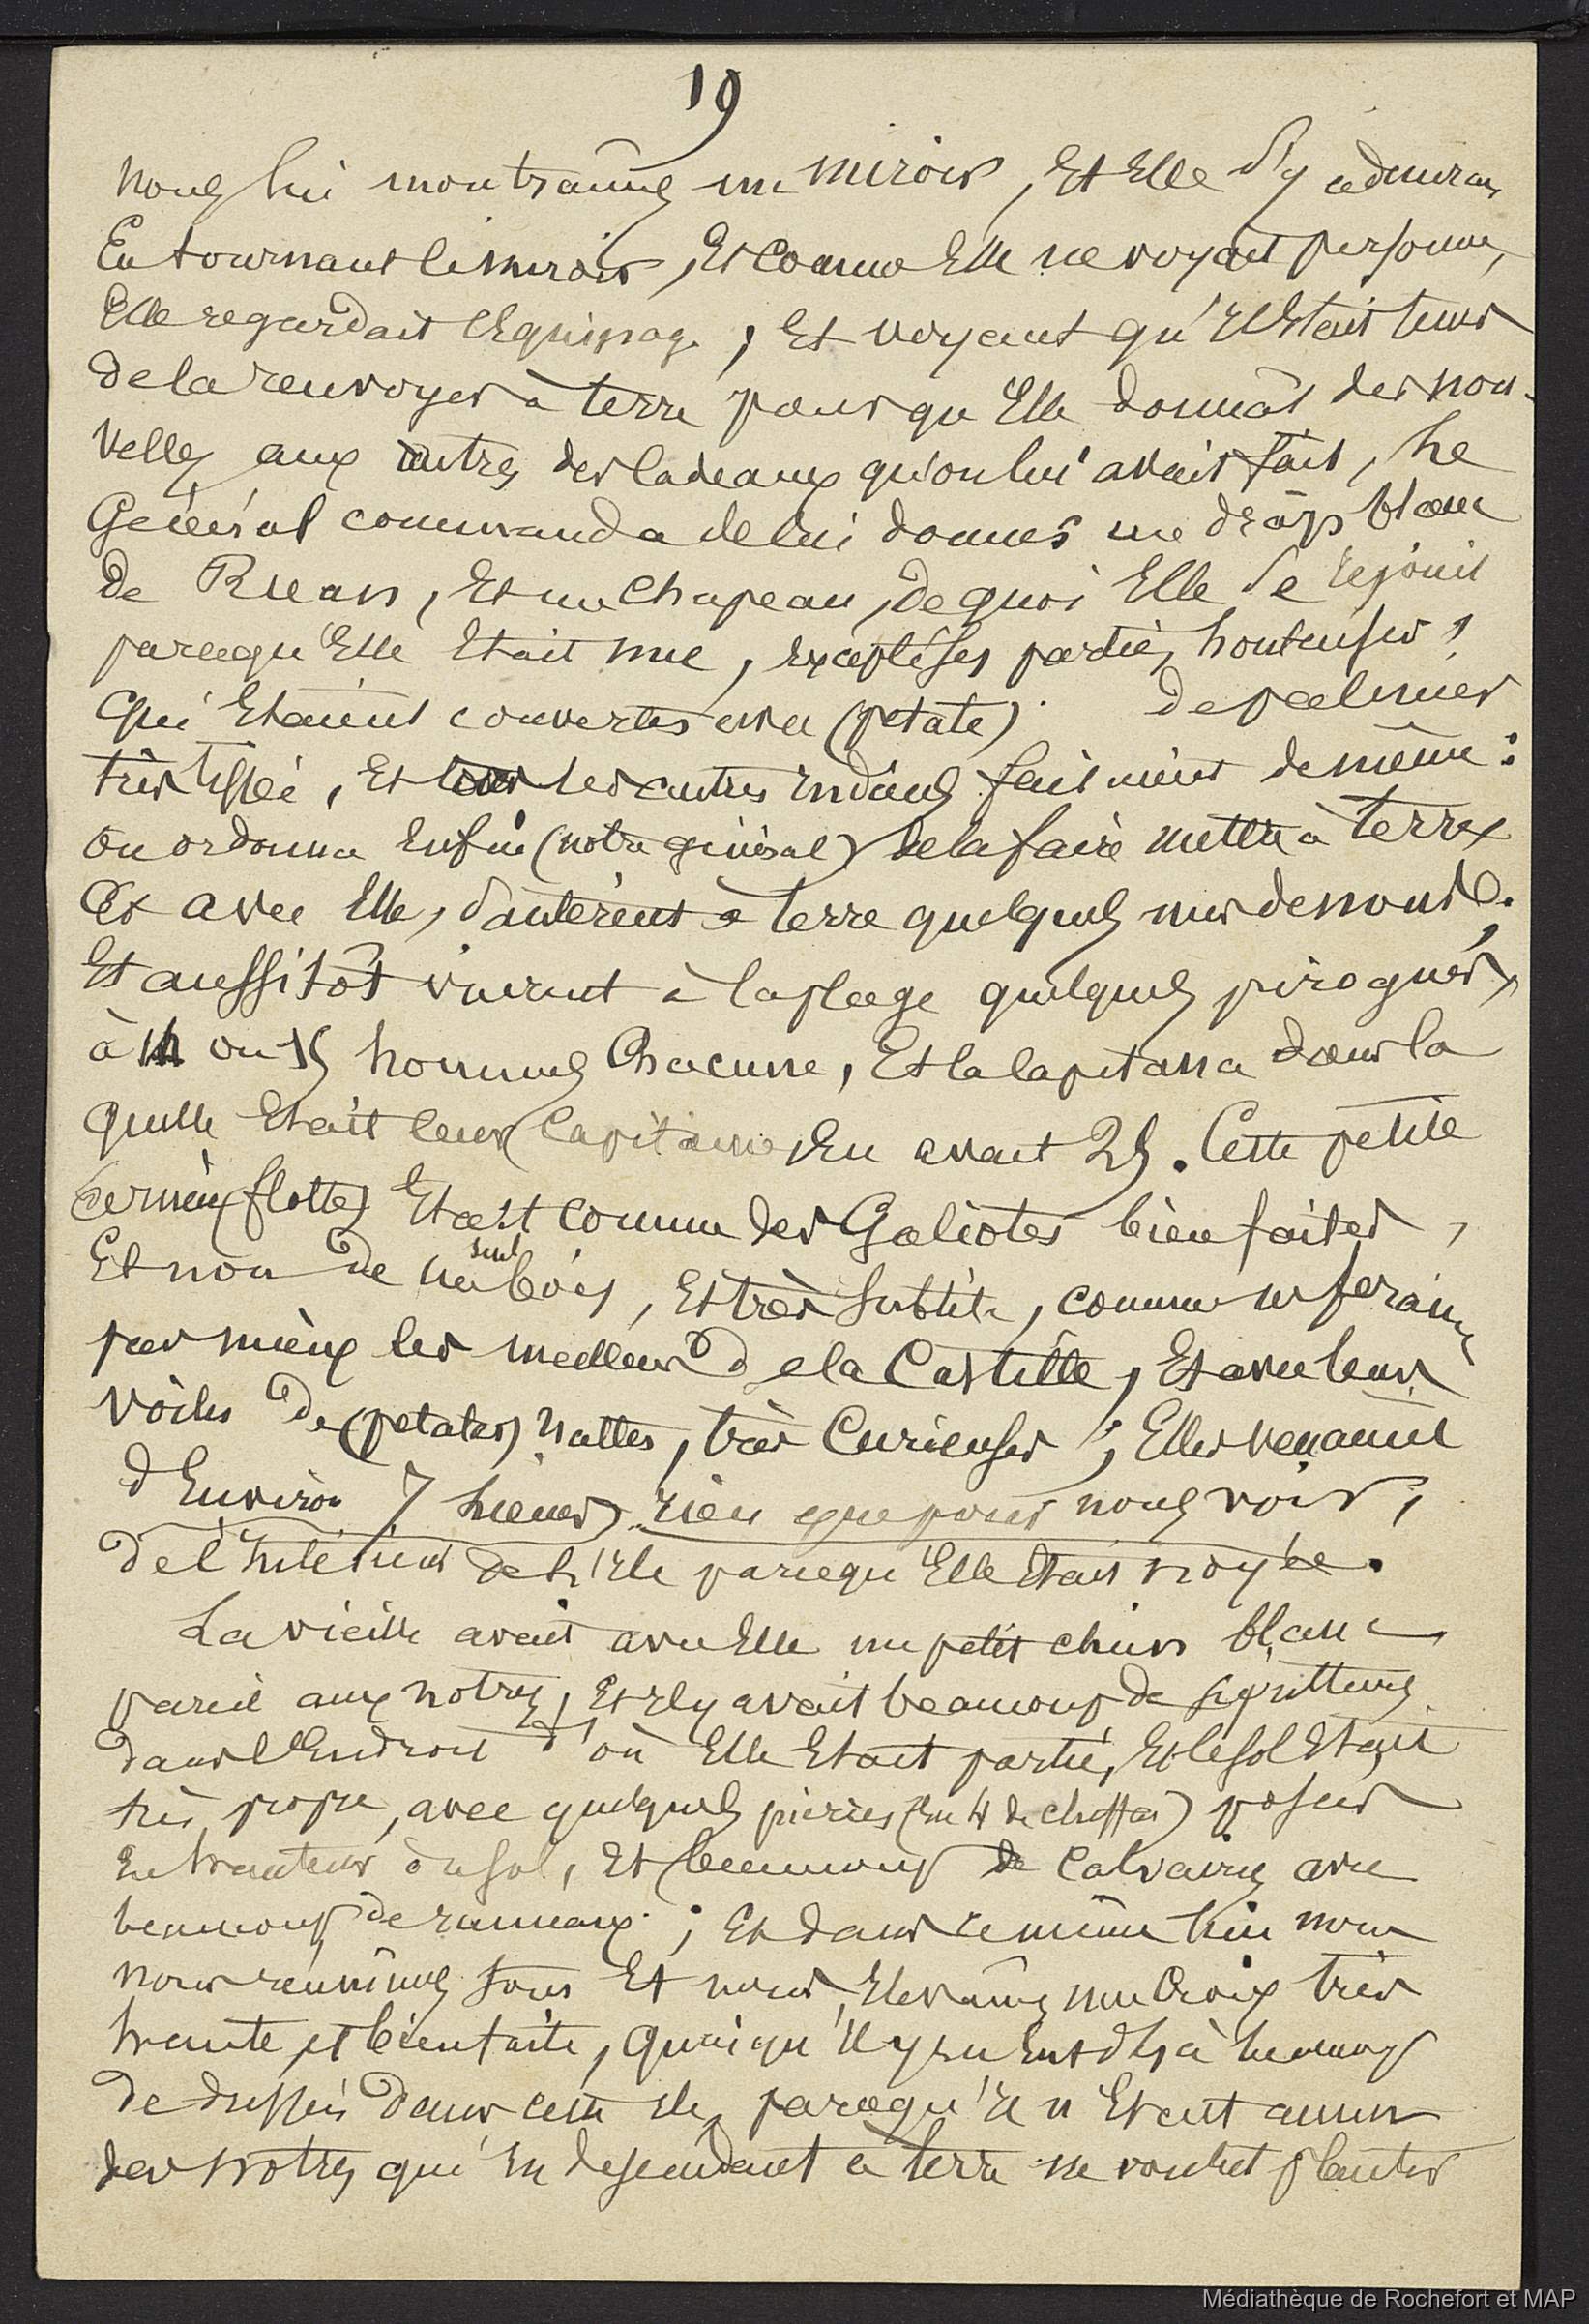 19
nous lui montrâmes un miroir, Et Elle s'y admira,
En tournant le miroir, Et comme Elle ne voyait personne,
Elle regardait l'Equipage, Et voyant qu'Il Etait tems
de la renvoyer à terre pour qu'Elle donnât des nou-
velles aux autres des cadeaux qu'on lui avait fait, le
Général commanda de lui donner un drap blanc
de Ruan, Et un chapeau, de quoi Elle se rejouit
parcequ'Elle Etait nue, excepté ses parties honteuses,
qui Etaient couvertes avec (petate) de palmier
très tissée, Et les autres Indiens faisaient de même:
On ordonna Enfin (notre général) de la faire mettre à terre
Et avec Elle, sautèrent à terre quelques uns de nous.
Et aussitôt vinrent à la plage quelques pirogues,
à 14 ou 15 hommes Chacune, Et la Capitana dans la
quelle Etait leur Capitaine En avait 25. Cette petite
flotte Etait comme des Galiotes bien faites,
Et non de un seul bois, Et très subtile, comme ne feraient
pas mieux les meilleurs de la Castille, Et avec leurs
voiles de (petates) nattes, très Curieuses; Elles venaient
d'Environ 7 lieues, rien que pour nous voir,
de l'Intérieur de l'Ile parcequ'Elle Etait noyée.
La vieille avait avec Elle un petit chien blanc
pareil aux notres, Et Il y avait beaucoup de sépultures
dans l'Endroit d'où Elle Etait partie, Et le sol Etait
très propre, avec quelques pierres posées
En hauteur du sol, Et beaucoup de Calvaires avec
beaucoup de rameaux; Et dans ce même lieu nous
nous réunîmes tous Et nous Elevâmes une Croix très
haute et bien faite, quoiqu'Il y en Eut déjà beaucoup
de dressés dans cette Ile, parcequ'Il n'Etait aucun
des notres qui En descendant à terre ne voulut planter
Médiathèque de Rochefort et MAP